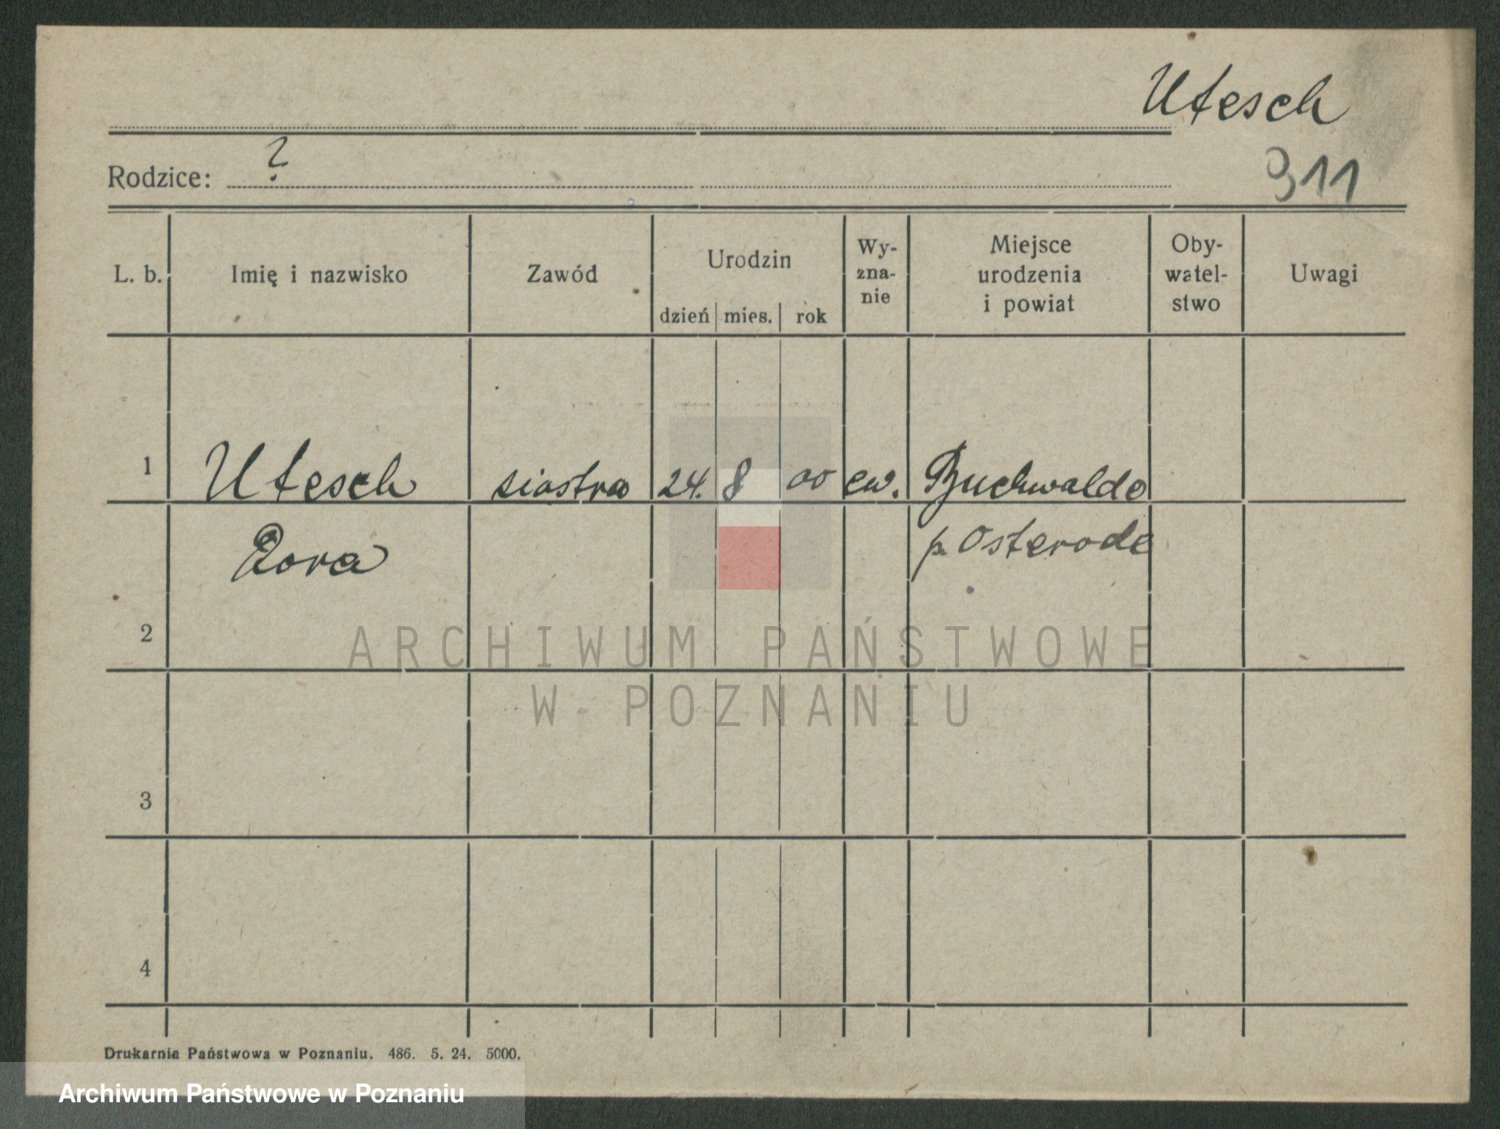 Utesch
Rodzice: ?
911
L. b. Imię i nazwisko Zawód Urodzin dzień mies. rok Wy-zna-nie Miejsce urodzenia i powiat Oby-watel-stwo Uwagi
1 Utesch siostra 24. 8 00 ew. Buchwalde
p. Osterode
2
3
4
ARCHIWUM PAŃSTWOWE
W POZNANIU
Drukarnia Państwowa w Poznaniu. 486. 5. 24. 5000.
Archiwum Państwowe w Poznaniu